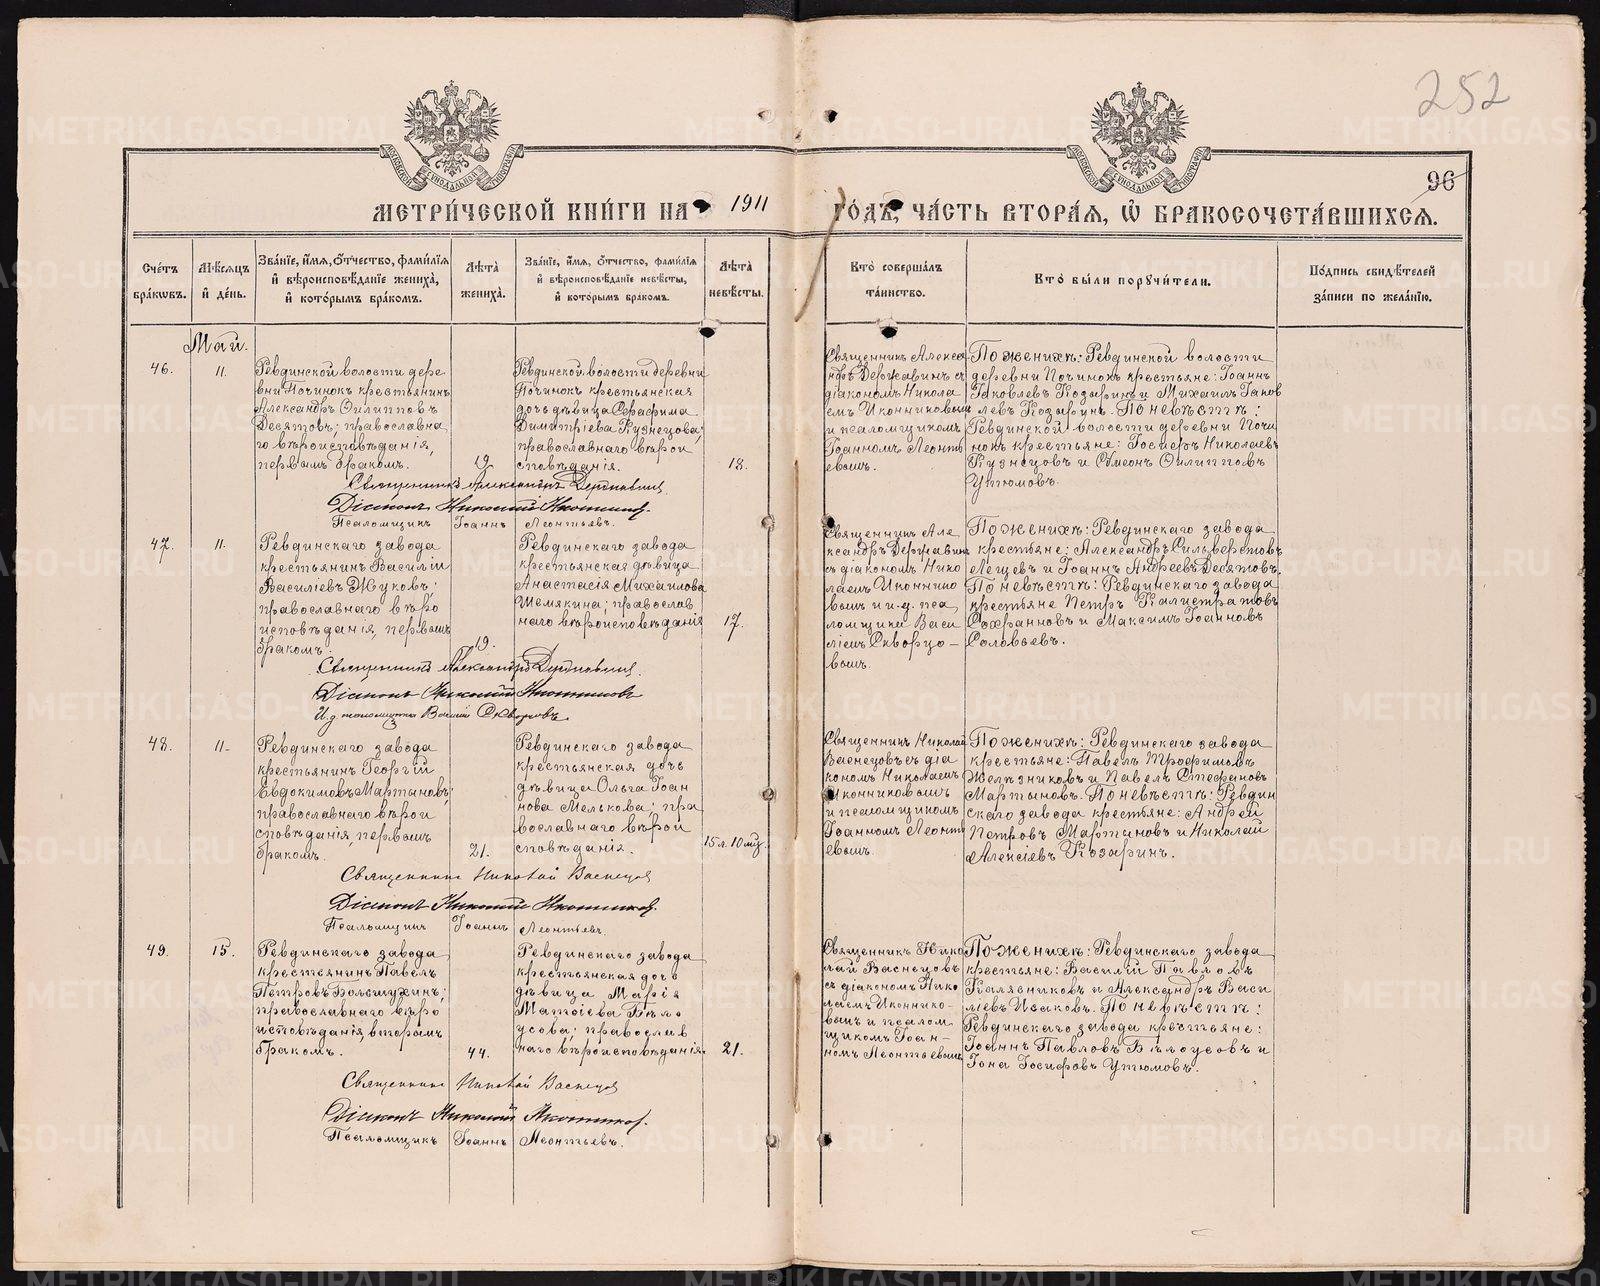 252
96
МЕТРИ́ЧЕСКОЙ КНИ́ГИ НА 1911 ГО́ДЪ, ЧА́СТЬ ВТОРА́Я, Ѽ БРАКОСОЧЕТА́ВШИХСЯ.
Сче́тъ бра́кωвъ.
Мѣ́сяцъ и́ де́нь.
Зва́нїе, и́мя, ѻ́тчество, фами́лїя и́ вѣроисповѣ́данїе жениха̀, и́ кото́рымъ бра́комъ.
Лѣ́та жениха̀.
Зва́нїе, и́мя, ѻ́тчество, фами́лїя и́ вѣроисповѣ́данїе невѣ́сты, и́ кото́рымъ бра́комъ.
Лѣ́та невѣ́сты.
Кто̀ соверша́лъ та́инство.
Кто̀ бы́ли поручи́тели.
По́дпись свидѣ́телей за́писи по жела́нїю.
Май.
46.
11.
Ревдинской волости дере-
вни Починокъ крестьянинъ
Александръ Филипповъ
Десятовъ; православна
го вѣроисповѣданія,
первымъ бракомъ.
19
Ревдинской волости деревни
Починокъ крестьянская
дочь дѣвица Серафима
Димитріева Кузнецова;
православнаго вѣрои
сповѣданія.
18.
Священникъ Алекса
ндръ Державинъ съ
діакономъ Никола
емъ Иконниковымъ
и псаломщикомъ
Іоанномъ Леонть
евымъ.
По женихѣ: Ревдинской волости
деревни Починокъ крестьяне: Іоаннъ
Іаковлевъ Козыринъ и Михаилъ Іаков
левъ Козыринъ. По невѣстѣ:
Ревдинской волости деревни Почи
нокъ крестьяне: Іосифъ Николаевъ
Кузнецовъ и Симеонъ Филипповъ
Утюмовъ.
Священникъ Александръ Державинъ
Діаконъ Николай Иконников.
Псаломщикъ Іоаннъ Леонтьевъ.
47.
11.
Ревдинскаго завода
крестьянинъ Василій
Василіевъ Жуковъ;
православнаго вѣро
исповѣданія, первымъ
бракомъ.
19.
Ревдинскаго завода
крестьянская дѣвица
Анастасія Михаилова
Шемякина; православ
наго вѣроисповѣданія
17.
Священникъ Але
ксандръ Державинъ
съ діакономъ Нико
лаемъ Иконнико
вымъ и и. д. пса
ломщика Васи
ліемъ Скворцо-
вымъ.
По женихѣ: Ревдинскаго завода
крестьяне: Александръ Сильверстовъ
Лещевъ и Іоаннъ Андреевъ Десятовъ.
По невѣстѣ: Ревдинскаго завода
крестьяне Петръ Калистратовъ
Сохранновъ и Максимъ Іоанновъ
Соловьевъ.
Священникъ Александръ Державинъ.
Діаконъ Николай Иконниковъ
И. д. псаломщика Василій Скворцовъ.
48.
11-
Ревдинскаго завода
крестьянинъ Георгій
Евдокимовъ Мартыновъ;
православнаго вѣрои
сповѣданія, первымъ
бракомъ.
21.
Ревдинскаго завода
крестьянская дочь
дѣвица Ольга Іоан
нова Мелькова; пра
вославнаго вѣрои
сповѣданія.
15 л. 10 мѣс.
Священникъ Николай
Васнецовъ съ діа
кономъ Николаемъ
Иконниковымъ
и псаломщикомъ
Іоанномъ Леонть
евымъ.
По женихѣ: Ревдинскаго завода
крестьяне: Павелъ Трофимовъ
Желѣзниковъ и Павелъ Стефановъ
Мартыновъ. По невѣстѣ: Ревдин
скаго завода крестьяне: Андрей
Петровъ Мартыновъ и Николай
Алексіевъ Козаринъ.
Священникъ Николай Васнецов
Діаконъ Николай Иконников.
Псаломщикъ Іоаннъ Леонтьевъ.
49.
15.
Ревдинскаго завода
крестьянинъ Павелъ
Петровъ Большухинъ;
православнаго вѣро
исповѣданія, вторымъ
бракомъ.
44.
Ревдинскаго завода
крестьянская дочь
дѣвица Марія
Матѳіева Бѣло
усова; православ
наго вѣроисповѣданія.
21.
Священникъ Нико
лай Васнецовъ
съ діакономъ Нико
лаемъ Иконнико-
вымъ и псалом
щикомъ Іоан-
номъ Леонтьевымъ
По женихѣ: Ревдинскаго завода
крестьяне: Василій Павловъ
Калявниковъ и Александръ Васи
ліевъ Исаковъ. По невѣстѣ:
Ревдинскаго завода крестьяне:
Іоаннъ Павловъ Бѣлоусовъ и
Іона Іосифовъ Утюмовъ.
Священникъ Николай Васнецов
Діаконъ Николай Иконников.
Псаломщикъ Іоаннъ Леонтьевъ.
METRIKI.GASO-URAL.RU